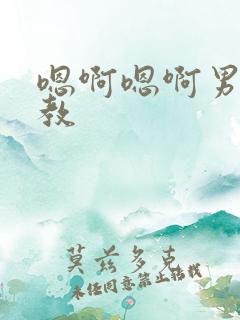 嗯啊嗯啊男
教
莫兹多克
未经同意禁止转载